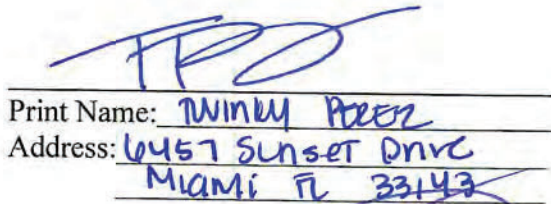 Print Name: Twinky Perez
Address: 6457 Sunset Drive
Miami FL 33143